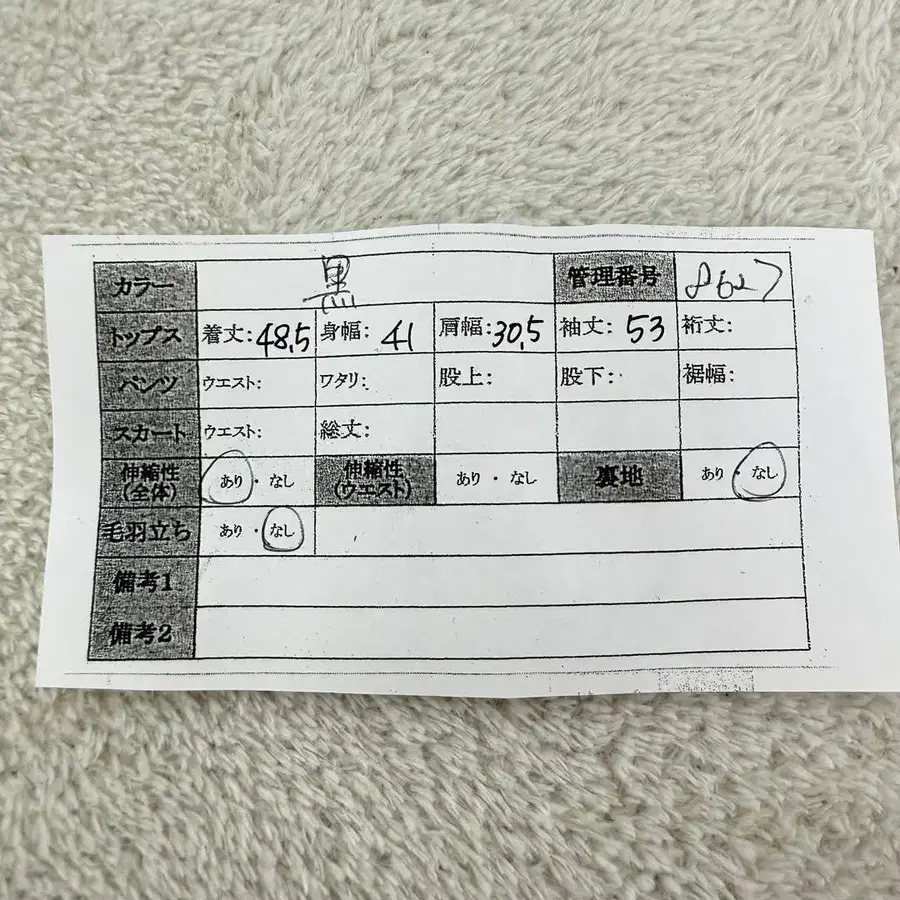 カラー 黒 管理番号 8627
トップス 着丈:48,5 身幅:41 肩幅:30,5 袖丈:53 裄丈:
パンツ ウエスト: ワタリ: 股上: 股下: 裾幅:
スカート ウエスト: 総丈:
伸縮性(全体) あり・なし 伸縮性(ウエスト) あり・なし 裏地 あり・なし
毛羽立ち あり・なし
備考1
備考2